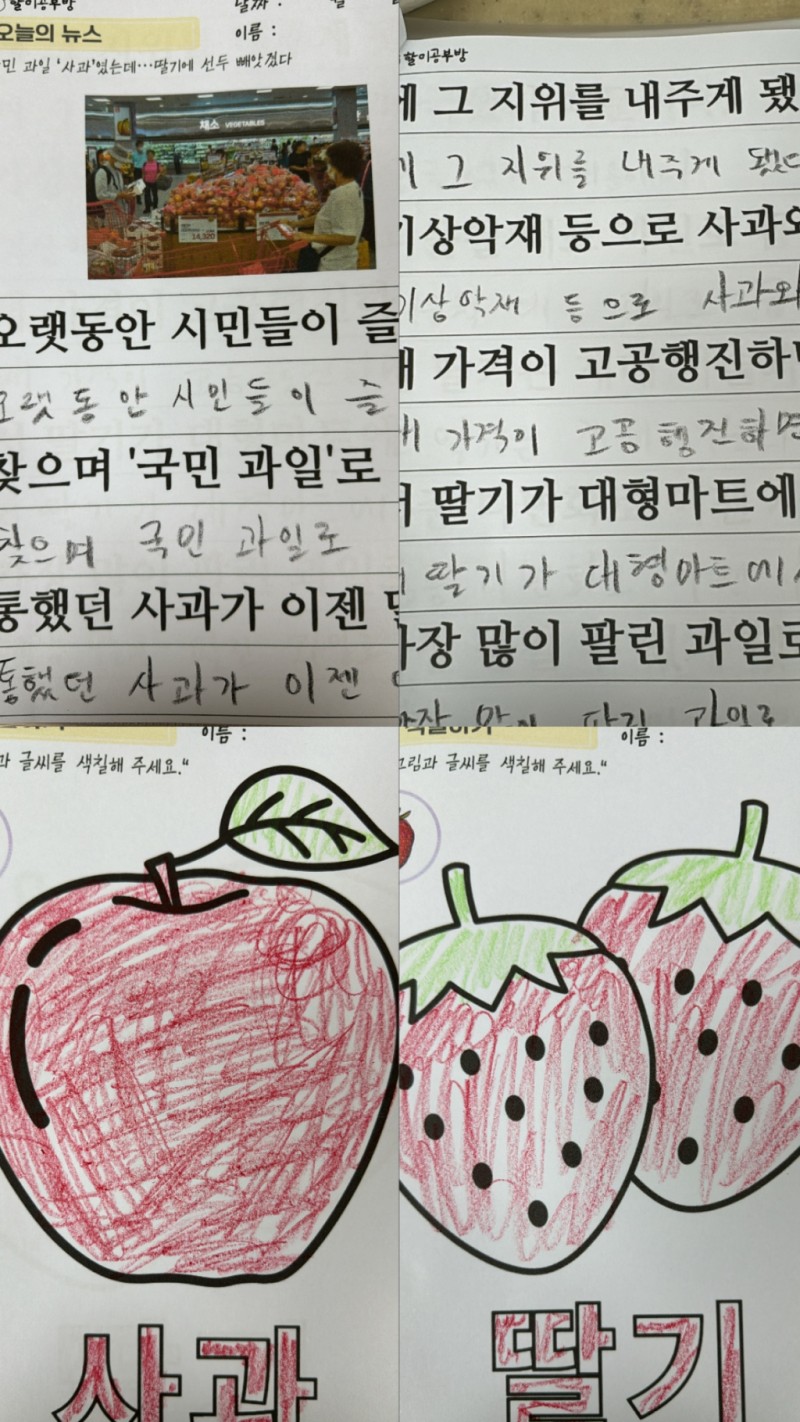 할미공부방
날짜 : 월
오늘의 뉴스
이름 :
민 과일 '사과'였는데…딸기에 선두 빼앗겼다
채소 VEGETABLES
14,320
오랫동안 시민들이 즐
오랫동안 시민들이 즐
찾으며 '국민 과일'로
찾으며 국민 과일로
통했던 사과가 이젠
통했던 사과가 이젠
할미공부방
에 그 지위를 내주게 됐
에 그 지위를 내주게 됐다
기상악재 등으로 사과와
기상악재 등으로 사과와
가격이 고공행진하며
가격이 고공행진하면
딸기가 대형마트에
딸기가 대형마트에서
가장 많이 팔린 과일로
가장 많이 팔린 과일로
이름 :
과 글씨를 색칠해 주세요."
사과
색칠하기
이름 :
그림과 글씨를 색칠해 주세요."
딸기